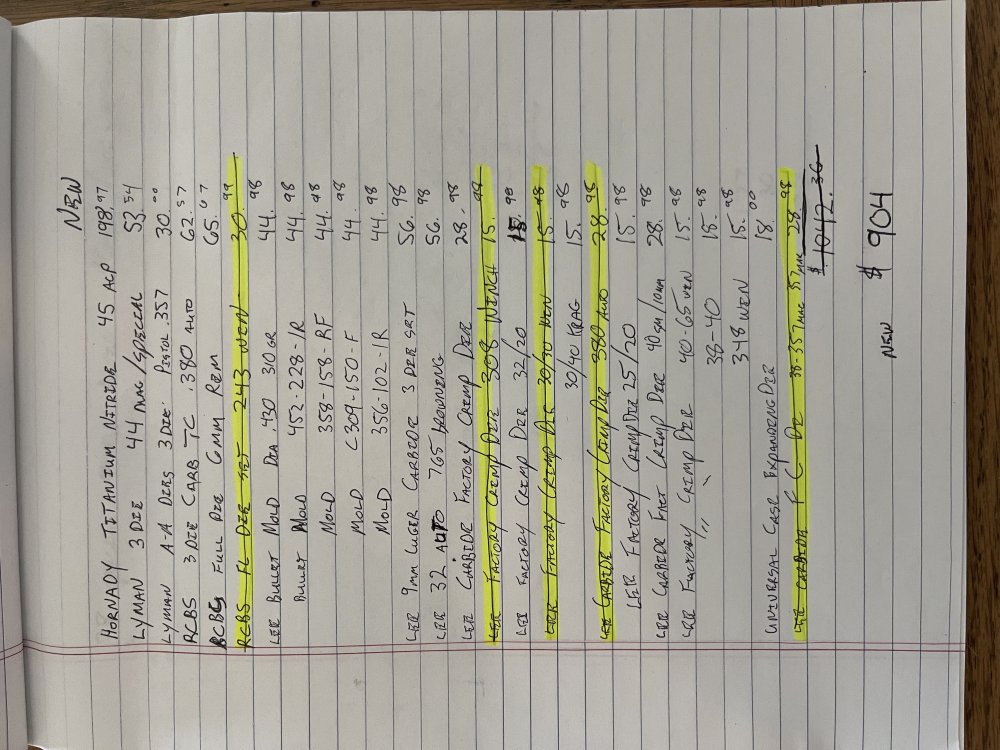 NEW
HORNADY TITANIUM NITRIDE 45 ACP 198.97
LYMAN 3 DIE 44 MAG/SPECIAL 53.54
LYMAN A-A DIES 3 DIE PISTOL .357 30.00
RCBS 3 DIE CARB TC .380 AUTO 62.57
RCBS FULL DIE 6MM REM 65.07
RCBS FL DIE SET 243 WIN 30.99
LEE BULLET MOLD DIA .430 310 GR 44.98
BULLET MOLD 452-228-1R 44.98
MOLD 358-158-RF 44.98
MOLD C309-150-F 44.98
MOLD 356-102-1R 44.98
LEE 9MM LUGER CARBIDE 3 DIE SET 56.98
LEE 32 AUTO 765 BROWNING 56.98
LEE CARBIDE FACTORY CRIMP DIE 28.98
LEE FACTORY CRIMP DIE 308 WINCH 15.98
LEE FACTORY CRIMP DIE 32/20 15.98
LEE FACTORY CRIMP DIE 30/30 WIN 15.98
30/40 KRAG 15.98
LEE CARBIDE FACTORY CRIMP DIE 380 AUTO 28.98
LEE FACTORY CRIMP DIE 25/20 15.98
LEE CARBIDE FACT CRIMP DIE 40 S&W/10MM 28.98
LEE FACTORY CRIMP DIE 40-65 WIN 15.98
" " 38-40 15.98
348 WIN 15.98
UNIVERSAL CASE EXPANDING DIE 18.00
LEE CARBIDE F C DIE 38-357 MAG 28.98
$1042.36
NEW $904